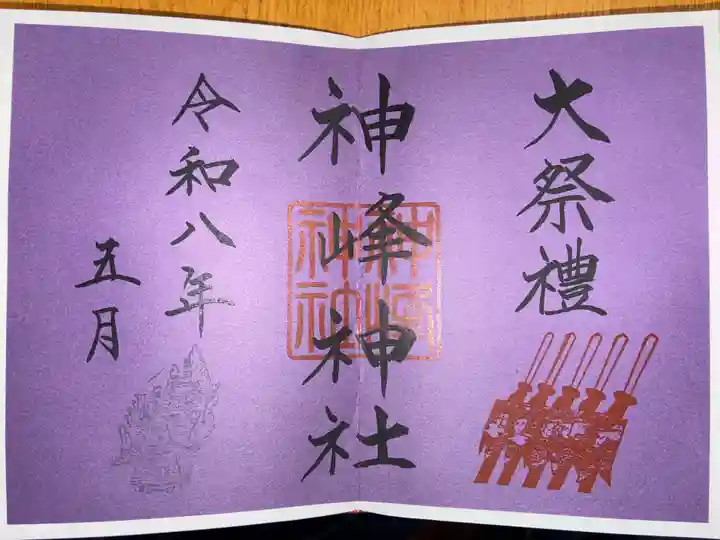 大祭禮
神峰神社
令和八年
五月
神峰
神社